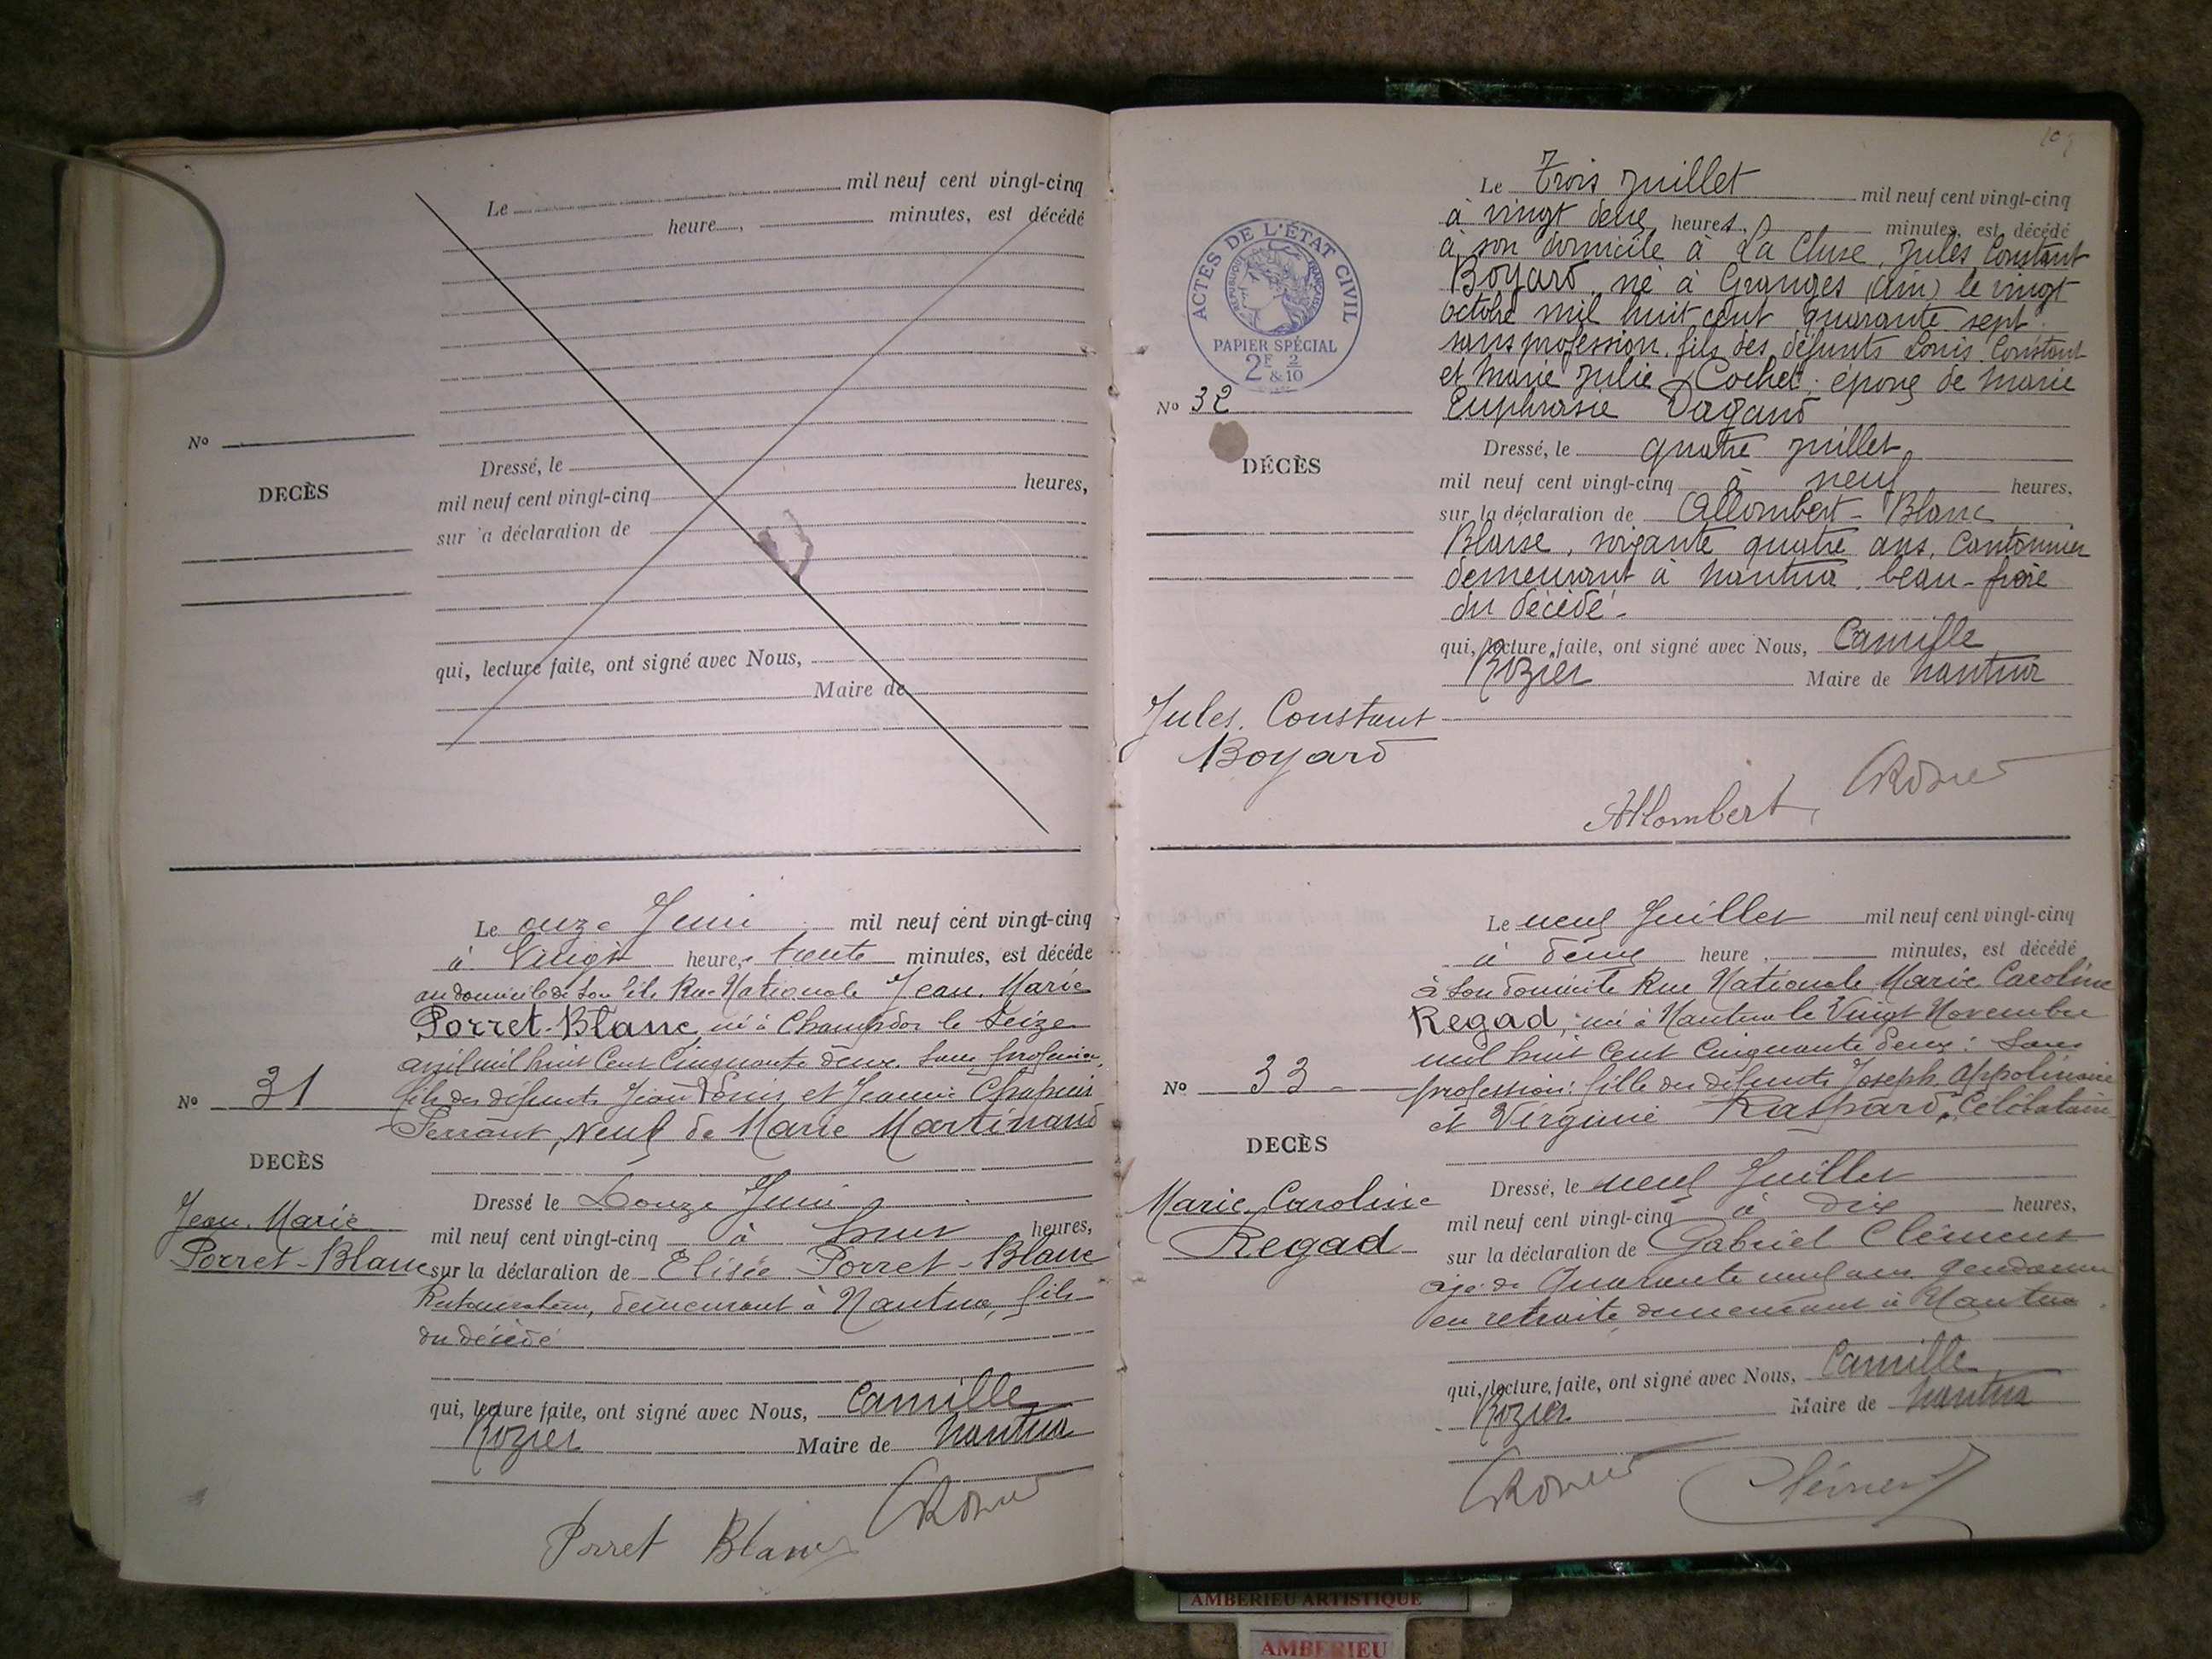 Le mil neuf cent vingt-cinq
heure , minutes, est décédé
No
DECÈS
Dressé, le
mil neuf cent vingt-cinq heures,
sur a déclaration de
qui, lecture faite, ont signé avec Nous,
Maire de
Le onze Juin mil neuf cent vingt-cinq
à Vingt heure, trente minutes, est décédé
au domicile de son fils Rue Nationale Jean Marie
Porret-Blanc, né à Champdor le seize
avril mil huit cent cinquante deux. Sans profession,
No 31
fils des défunts Jean Louis et Jeannie Chapuis
Ferrant, Veuf de Marie Martinand
DECÈS
Jean Marie
Porret-Blanc
Dressé le Douze Juin
mil neuf cent vingt-cinq à heures,
sur la déclaration de Elisée Porret-Blanc
Restaurateur, demeurant à Nantua, fils
du décédé
qui, lecture faite, ont signé avec Nous, Camille
Rozier Maire de Nantua
Porret Blanc CRozier
Le Trois Juillet mil neuf cent vingt-cinq
à vingt deux heures, minutes, est décédé
à son domicile à La Cluse, Jules Constant
Boyard, né à Granges (Ain) le vingt
octobre mil huit cent quarante sept
sans profession, fils des défunts Louis Constant
et Marie Julie Cochet, époux de Marie
Euphrasie Dagand
ACTES DE L'ÉTAT CIVIL
RÉPUBLIQUE FRANÇAISE
PAPIER SPÉCIAL
2F 2
& 10
No 32
DÉCÈS
Dressé, le quatre juillet
mil neuf cent vingt-cinq à neuf heures,
sur la déclaration de Allombert-Blanc
Blaise, soixante quatre ans, Cantonnier
demeurant à Nantua, beau-frère
du décédé.
qui, lecture faite, ont signé avec Nous, Camille
Rozier Maire de Nantua
Jules Constant
Boyard
Allombert CRozier
Le neuf Juillet mil neuf cent vingt-cinq
à deux heure , minutes, est décédé
à son domicile Rue Nationale, Marie Caroline
Regad, née à Nantua le Vingt Novembre
mil huit cent cinquante deux: Sans
No 33
profession: fille des défunts Joseph Appolinaire
et Virginie Raffard, Célibataire
DECÈS
Marie Caroline
Regad
Dressé, le neuf Juillet
mil neuf cent vingt-cinq à dix heures,
sur la déclaration de Gabriel Clément
âgé de Quarante neuf ans gendarme
en retraite demeurant à Nantua.
qui, lecture, faite, ont signé avec Nous, Camille
Rozier Maire de Nantua
CRozier Clément
AMBERIEU ARTISTIQUE
AMBERIEU